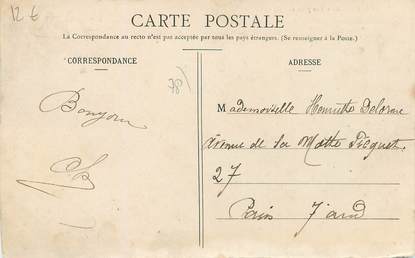 12 €
CARTE POSTALE
La Correspondance au recto n'est pas acceptée par tous les pays étrangers. (Se renseigner à la Poste.)
CORRESPONDANCE
78)
Bonjour
ADRESSE
Mademoiselle Henriette Delorme
Avenue de La Mothe Picquet
27
Paris 7 arrd